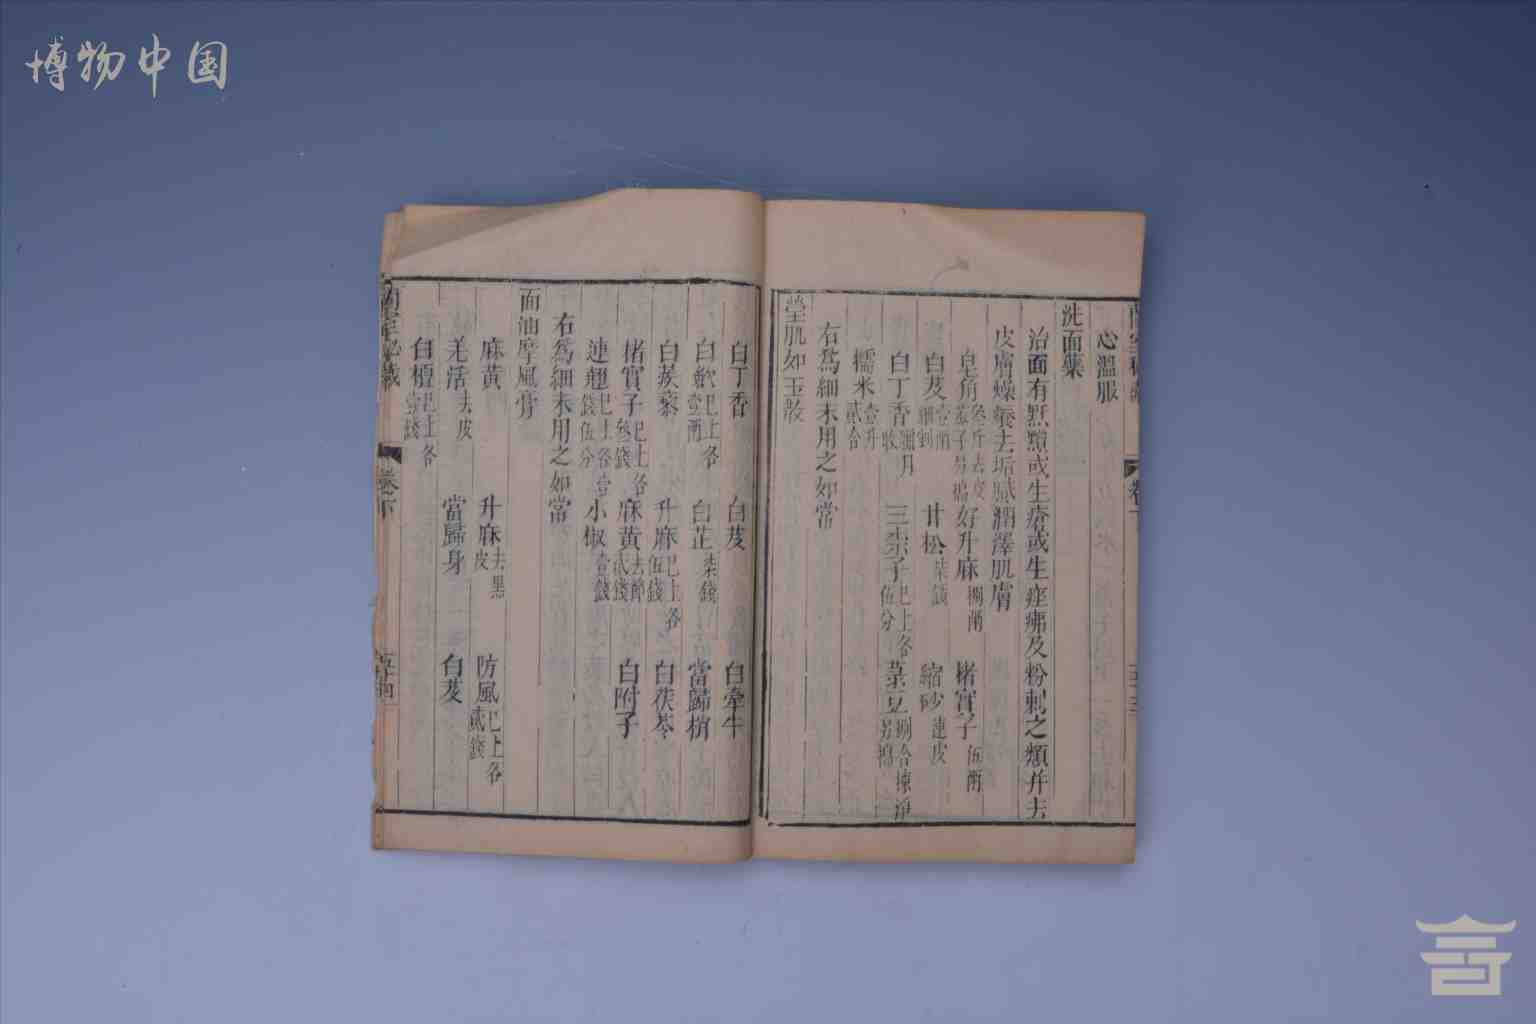 博物中国
心溫服
洗面藥
治面有䵟黯或生瘡或生痤疿及粉刺之類并去
皮膚燥癢去垢膩潤澤肌膚
皂角叁斤去皮弦子另搗 好升麻捌兩 楮實子伍兩
白芨壹兩細剉 甘松柒錢 縮砂連皮
白丁香臘月收 三柰子已上各伍分 菉豆捌合揀淨另搗
糯米壹升貳合
右爲細末用之如常
瑩肌如玉散
白丁香 白芨 白牽牛
白蘞已上各壹兩 白芷柒錢 當歸梢
白蒺藜 升麻已上各伍錢 白茯苓
楮實子已上各叁錢 麻黃去節貳錢 白附子
連翹已上各壹錢伍分 小椒壹錢
右爲細末用之如常
面油摩風膏
麻黃 升麻去黑皮 防風已上各貳錢
羌活去皮 當歸身 白芨
白檀已上各壹錢
蘭室秘藏 卷下 五十四